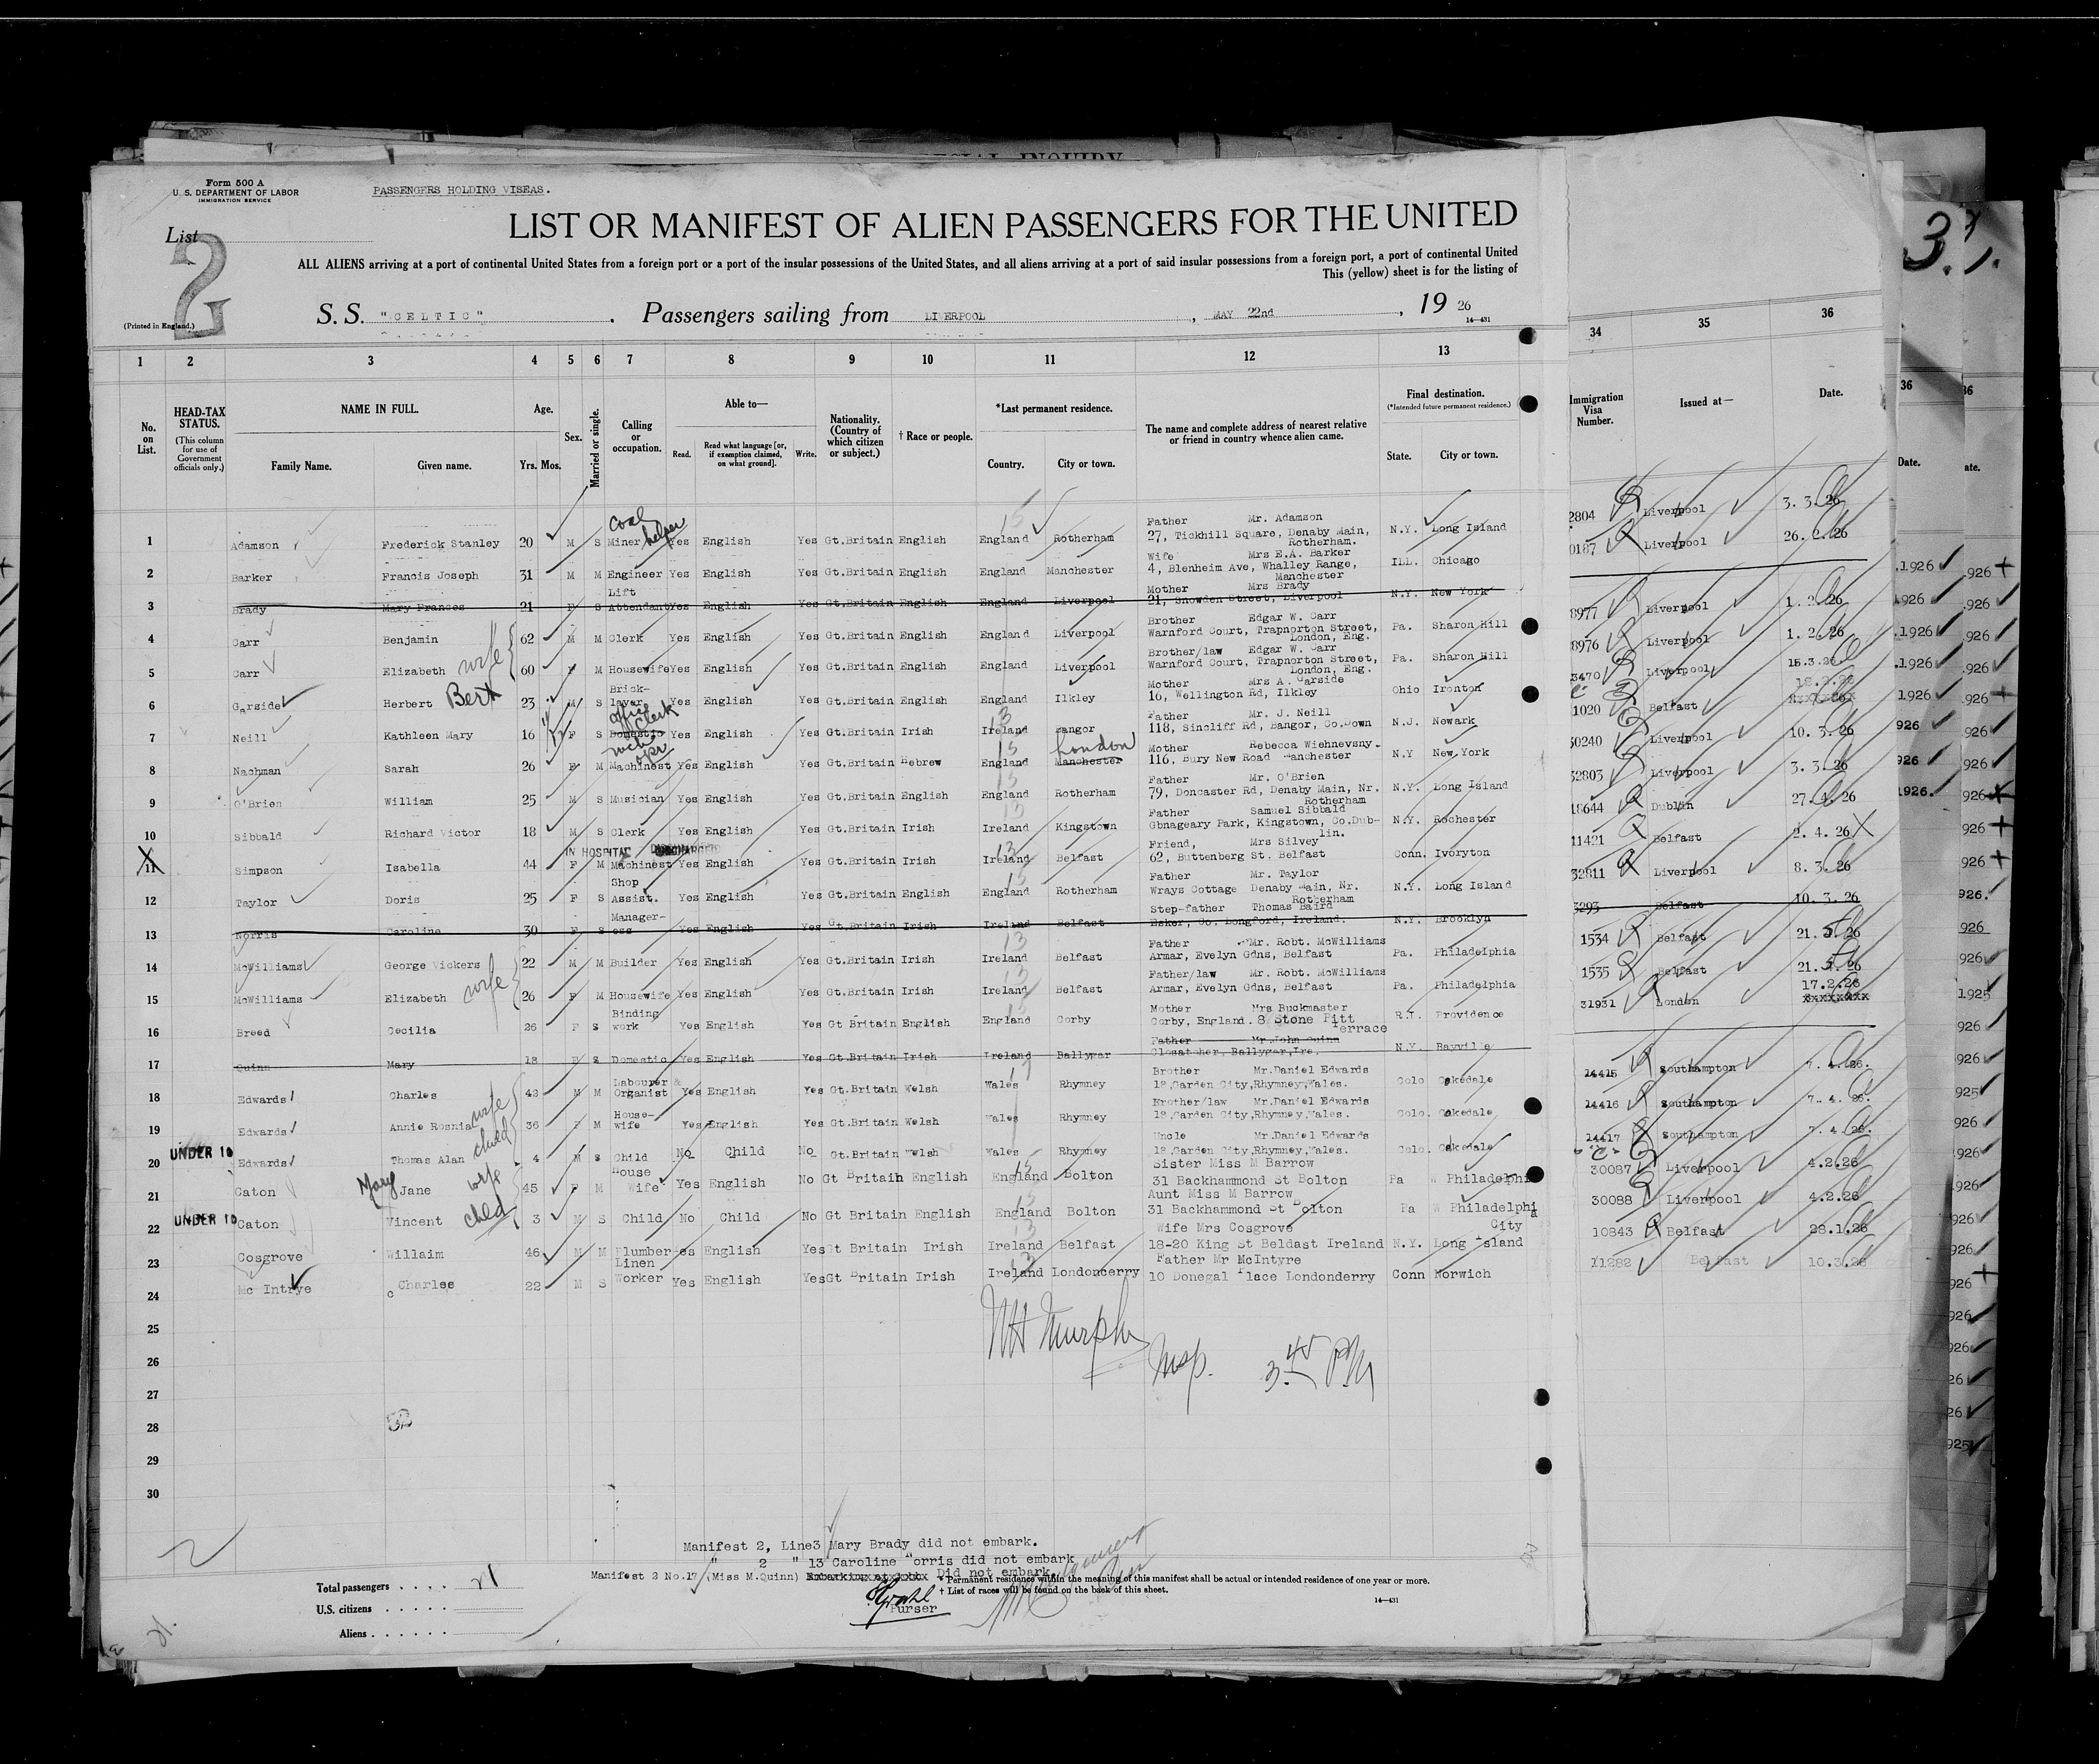 SPECIAL INQUIRY
Form 500 A
U. S. DEPARTMENT OF LABOR
IMMIGRATION SERVICE
PASSENGERS HOLDING VISEAS.
List
2
LIST OR MANIFEST OF ALIEN PASSENGERS FOR THE UNITED
ALL ALIENS arriving at a port of continental United States from a foreign port or a port of the insular possessions of the United States, and all aliens arriving at a port of said insular possessions from a foreign port, a port of continental United
This (yellow) sheet is for the listing of
(Printed in England.)
S. S. "CELTIC". Passengers sailing from LIVERPOOL, MAY 22nd, 19 26
14—431
1 2 3 4 5 6 7 8 9 10 11 12 13 34 35 36
No. on List.
HEAD-TAX STATUS.
(This column for use of Government officials only.)
NAME IN FULL.
Family Name. Given name.
Age.
Yrs. Mos.
Sex.
Married or single.
Calling or occupation.
Able to—
Read. Read what language [or, if exemption claimed, on what ground]. Write.
Nationality. (Country of which citizen or subject.)
† Race or people.
*Last permanent residence.
Country. City or town.
The name and complete address of nearest relative or friend in country whence alien came.
Final destination.
(*Intended future permanent residence.)
State. City or town.
Immigration Visa Number.
Issued at—
Date.
1 Adamson Frederick Stanley 20 M S Miner coal helper Yes English Yes Gt.Britain English England Rotherham Father Mr. Adamson 27, Tickhill Square, Denaby Main, Rotherham. N.Y. Long Island
2 Barker Francis Joseph 31 M M Engineer Yes English Yes Gt.Britain English England Manchester Wife Mrs E.A. Barker 4, Blenheim Ave, Whalley Range, Manchester ILL. Chicago
3 Brady Mary Frances 21 F S Lift Attendant Yes English Yes Gt.Britain English England Liverpool Mother Mrs Brady 21, Snowden Street, Liverpool N.Y. New York
4 Carr Benjamin 62 M M Clerk Yes English Yes Gt.Britain English England Liverpool Brother Edgar W. Carr Warnford Court, Trapnorton Street, London, Eng. Pa. Sharon Hill
5 Carr Elizabeth wife 60 F M Housewife Yes English Yes Gt.Britain English England Liverpool Brother/law Edgar W. Carr Warnford Court, Trapnorton Street, London, Eng. Pa. Sharon Hill
6 Garside Herbert Bert 23 M S Brick-layer Yes English Yes Gt.Britain English England Ilkley Mother Mrs A. Garside 16, Wellington Rd, Ilkley Ohio Ironton
7 Neill Kathleen Mary 16 F S Domestic office Clerk Yes English Yes Gt.Britain Irish Ireland Bangor Father Mr. J. Neill 118, Sincliff Rd, Bangor, Co.Down N.J. Newark
8 Nachman Sarah 26 F M Machinest Yes English Yes Gt.Britain Hebrew England Manchester London Mother Rebecca Wiehnevsny. 116, Bury New Road Manchester N.Y New York
9 O'Brien William 25 M S Musician Yes English Yes Gt.Britain English England Rotherham Father Mr. O'Brien 79, Doncaster Rd, Denaby Main, Nr. Rotherham N.Y. Long Island
10 Sibbald Richard Victor 18 M S Clerk Yes English Yes Gt.Britain Irish Ireland Kingstown Father Samuel Sibbald Gbnageary Park, Kingstown, Co.Dub-lin. N.Y. Rochester
IN HOSPITAL DISCHARGED
11 Simpson Isabella 44 F M Machinest Yes English Yes Gt.Britain Irish Ireland Belfast Friend, Mrs Silvey 62, Buttenberg St. Belfast Conn. Ivoryton
12 Taylor Doris 25 F S Shop Assist. Yes English Yes Gt.Britain English England Rotherham Father Mr. Taylor Wrays Cottage Denaby Main, Nr. Rotherham N.Y. Long Island
13 Norris Caroline 30 F S Manager-ess Yes English Yes Gt.Britain English Ireland Belfast Step-father Thomas Baird Esker, Co. Longford, Ireland. N.Y. Brooklyn
14 McWilliams George Vickers 22 M M Builder Yes English Yes Gt.Britain Irish Ireland Belfast Father Mr. Robt. McWilliams Armar, Evelyn Gdns, Belfast Pa. Philadelphia
15 McWilliams Elizabeth wife 26 F M Housewife Yes English Yes Gt.Britain Irish Ireland Belfast Father/law Mr. Robt. McWilliams Armar, Evelyn Gdns, Belfast Pa. Philadelphia
16 Breed Cecilia 26 F S Binding work Yes English Yes Gt Britain English England Corby Mother Mrs Buckmaster Corby, England. 8 Stone Pitt Terrace R.I. Providence
17 Quinn Mary 18 F S Domestic Yes English Yes Gt.Britain Irish Ireland Ballygar Father Mr.John Quinn Closatcher, Ballygar,Ire. N.Y. Bayville
18 Edwards Charles 43 M M Labourer & Organist Yes English Yes Gt.Britain Welsh Wales Rhymney Brother Mr.Daniel Edwards 18,Garden City,Rhymney,Wales. Colo Oakedale
19 Edwards Annie Rosnia wife 36 F M House-wife Yes English Yes Gt.Britain Welsh Wales Rhymney Brother/law Mr.Daniel Edwards 18,Garden City,Rhymney,Wales. Colo. Oakedale
UNDER 10
20 Edwards Thomas Alan child 4 M S Child No Child No Gt.Britain Welsh Wales Rhymney Uncle Mr.Daniel Edwards 18,Garden City,Rhymney,Wales. Colo. Oakedale
21 Caton Mary Jane wife 45 F M House Wife Yes English No Gt Britain English England Bolton Sister Miss M Barrow 31 Backhammond St Bolton Pa W Philadelphi
UNDER 10
22 Caton Vincent child 3 M S Child No Child No Gt Britain English England Bolton Aunt Miss M Barrow 31 Backhammond St Bolton Pa W Philadelphia
23 Cosgrove Willaim 46 M M Plumber Yes English Yes Gt Britain Irish Ireland Belfast Wife Mrs Cosgrove 18-20 King St Beldast Ireland N.Y. Long Island City
24 Mc Intrye Charles 22 M S Linen Worker Yes English Yes Gt Britain Irish Ireland Londonderry Father Mr McIntyre 10 Donegal Place Londonderry Conn Norwich
25
26
27
28
29
30
2804 Liverpool 3. 3. 26
0187 Liverpool 26. 2. 26
8977 Liverpool 1. 2. 26
8976 Liverpool 1. 2. 26
3470 Liverpool 15.3.26
1020 Belfast
30240 Liverpool 10. 3. 26
32803 Liverpool 3. 3. 26
18644 Dublin 27. 4. 26
11421 Belfast 2. 4. 26
32811 Liverpool 8. 3. 26
3293 Belfast 10. 3. 26
1534 Belfast 21. 5. 26
1535 Belfast 21. 5. 26
31931 London 17.2.26
14415 Southampton 7. 4. 26.
14416 Southampton 7. 4. 26.
14417 Southampton 7. 4. 26.
30087 Liverpool 4.2.26
30088 Liverpool 4.2.26
10843 Belfast 28.1.26
11282 Belfast 10.3.26
Insp. 3.45 PM
52
Manifest 2, Line3 Mary Brady did not embark.
" 2 " 13 Caroline Norris did not embark
Manifest 2 No.17 (Miss M.Quinn) Did not embark.
Purser
Total passengers . . . . 21
U.S. citizens . . . . .
Aliens . . . . . .
* Permanent residence within the meaning of this manifest shall be actual or intended residence of one year or more.
† List of races will be found on the back of this sheet.
14—431